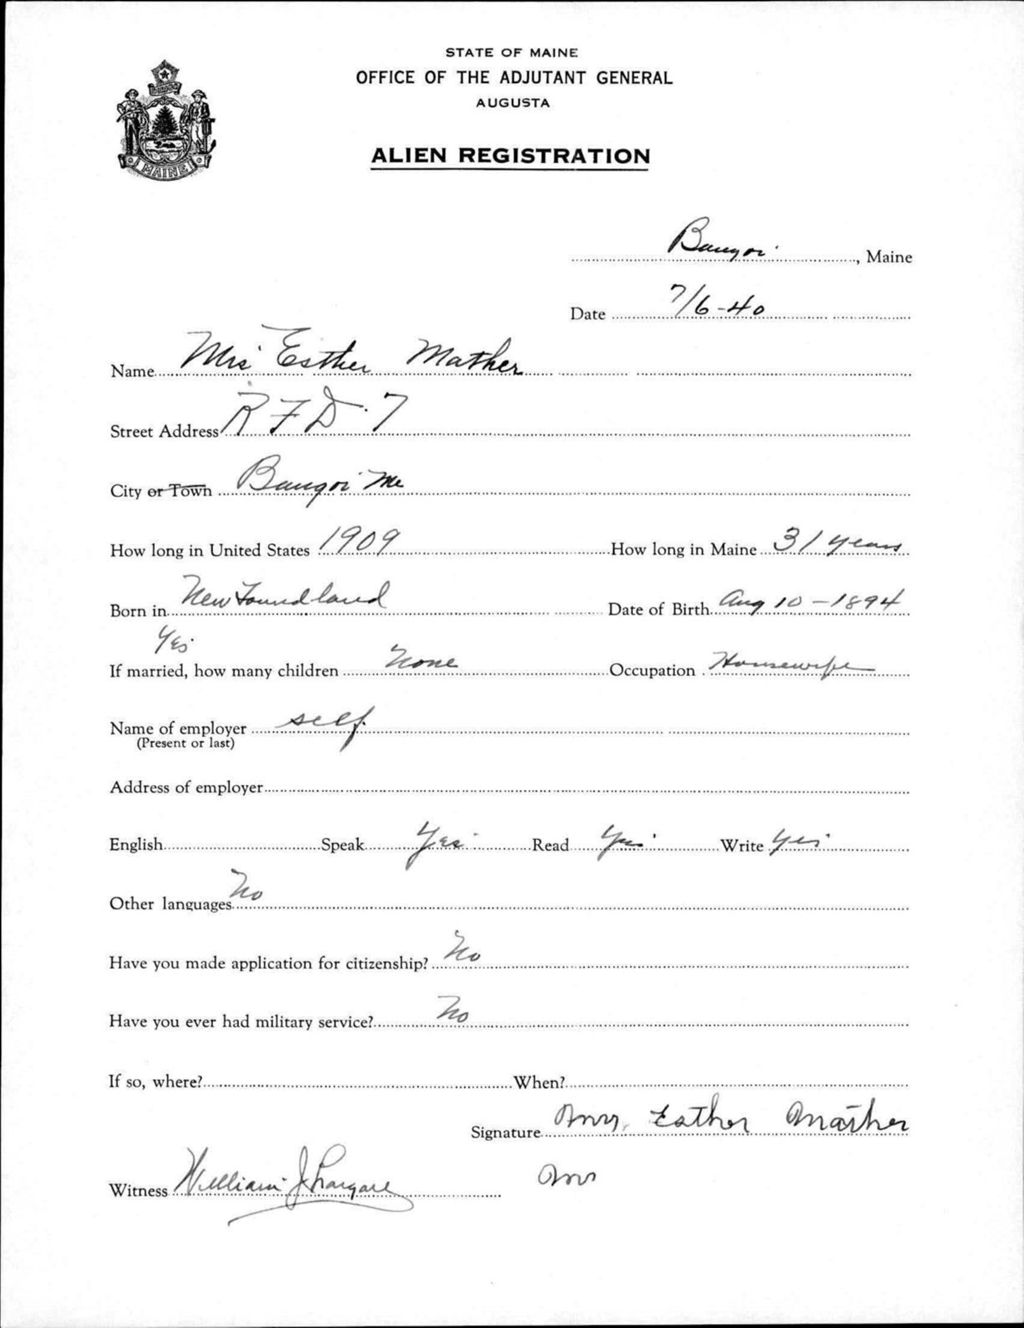 STATE OF MAINE
OFFICE OF THE ADJUTANT GENERAL
AUGUSTA
MAINE
ALIEN REGISTRATION
Bangor, Maine
Date 7/6-40
Name Mrs Esther Mather
Street Address R F D. 7
City or Town Bangor Me
How long in United States 1909 How long in Maine 31 years
Born in Newfoundland Date of Birth Aug 10-1894
Yes
If married, how many children None Occupation Housewife
Name of employer self
(Present or last)
Address of employer
English Speak Yes Read Yes Write Yes
Other languages No
Have you made application for citizenship? No
Have you ever had military service? No
If so, where? When?
Signature Mrs. Esther Mather
Witness William J